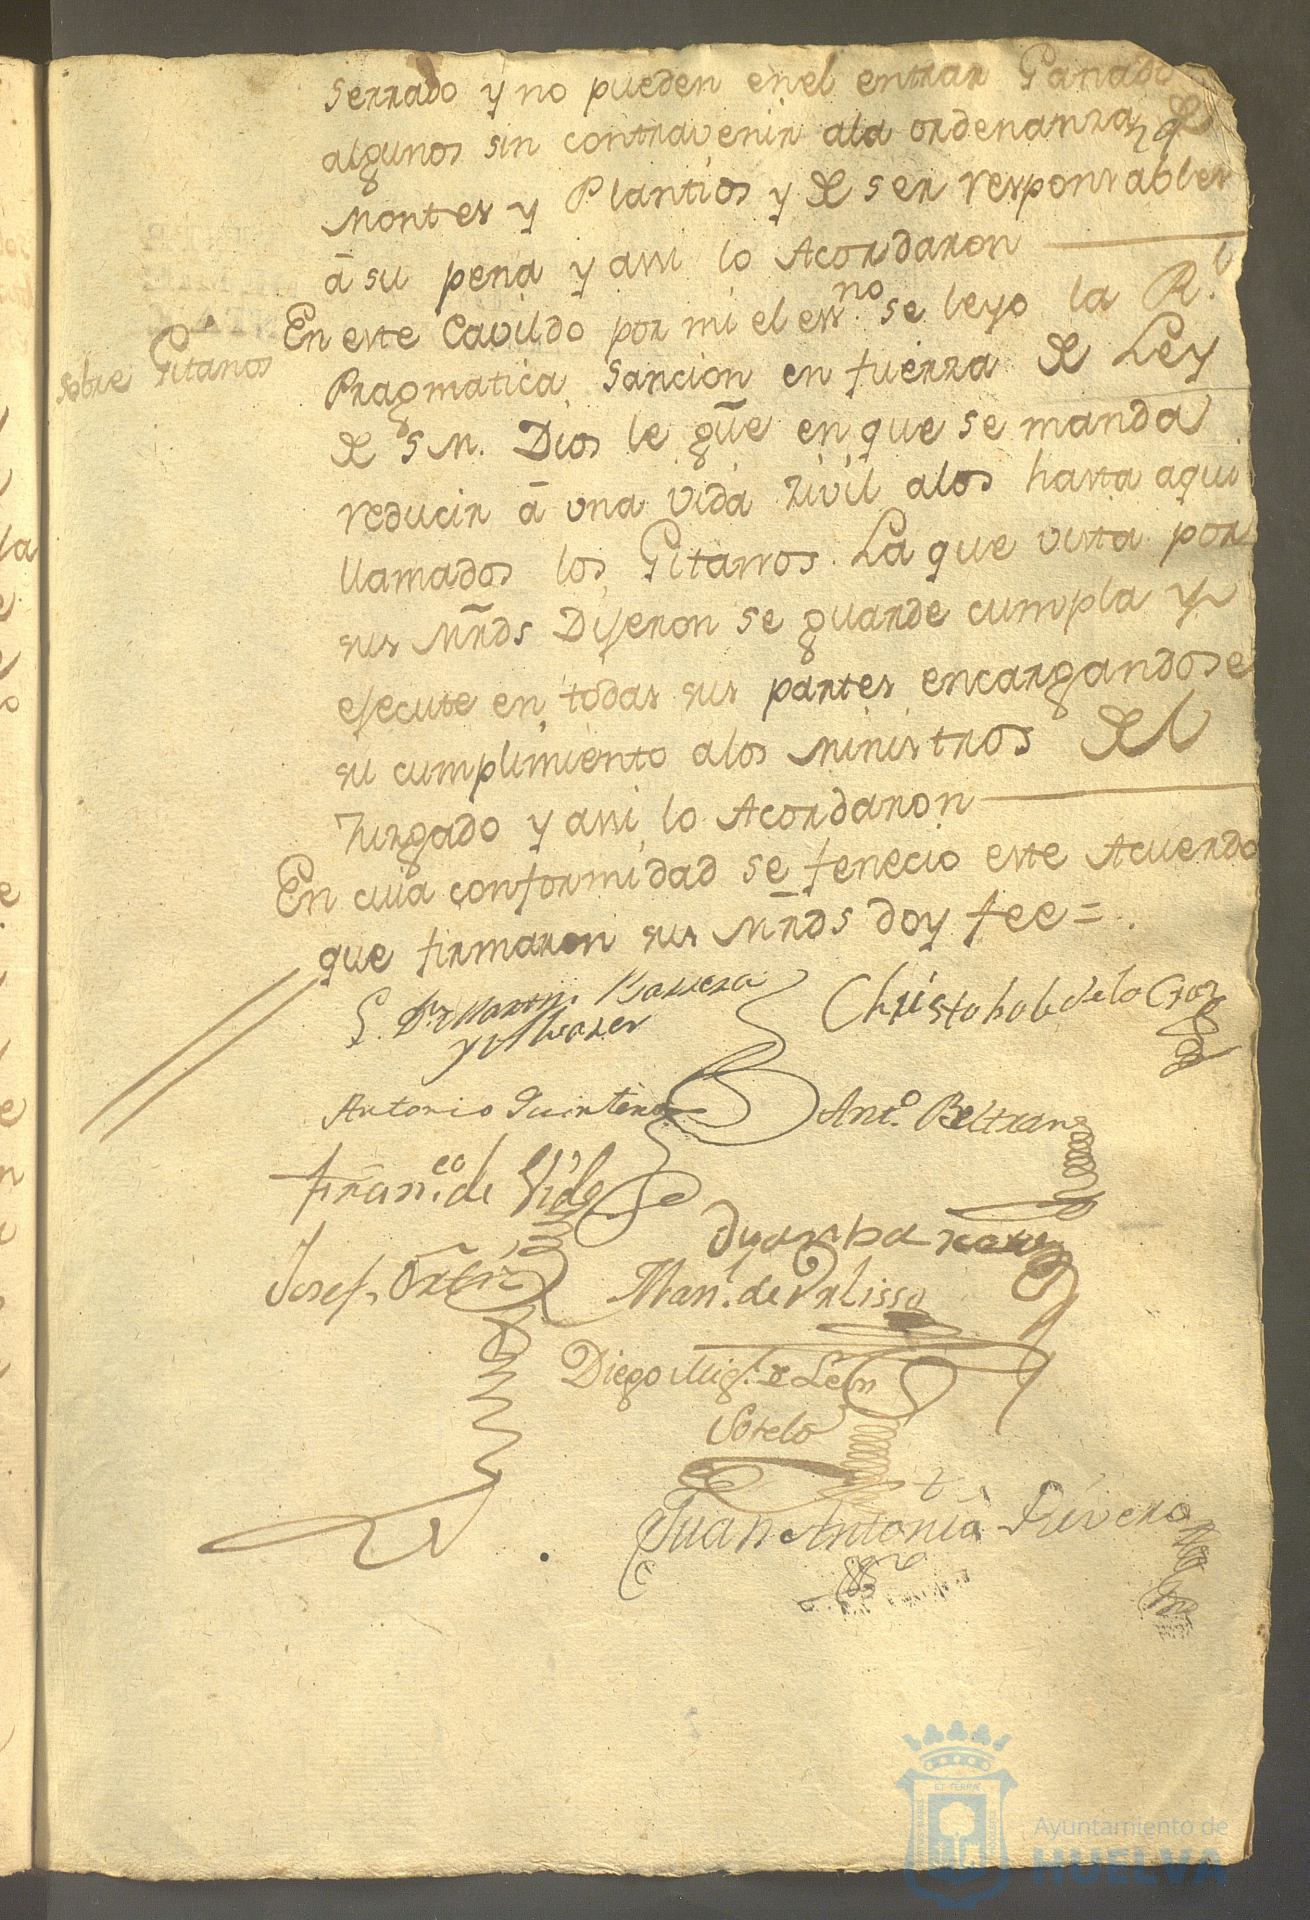 serrado y no pueden enel entrar Ganados
algunos sin contravenir ala ordenanza de
Montes y Plantios y de ser responsables
â su pena y assi lo Acordaron
sobre Gitanos
En este Cavildo por mi el essno. se leyo la Rl.
Pragmatica Sancion en fuerza de Ley
de S M. Dios le gûe en que se manda
reducir â una vida zivil alos hasta aqui
llamados los Gitanos. La que vista por
sus Mrds Dijeron se guarde cumpla y
ejecute en todas sus partes encargandose
su cumplimiento alos Ministros del
Juzgado y assi lo Acordaron
En cuia conformidad se fenecio este Acuerdo
que firmaron sus Mrds doy fee = .
Barrera Christobal de la Cruz
Antonio Quintero Anto. Beltran
Franco. de
Josef Ortiz Manl. de
Diego Migl. de Leon
Sotelo
Juan Antonio Rivera
ET TERRÆ
Ayuntamiento de
HUELVA